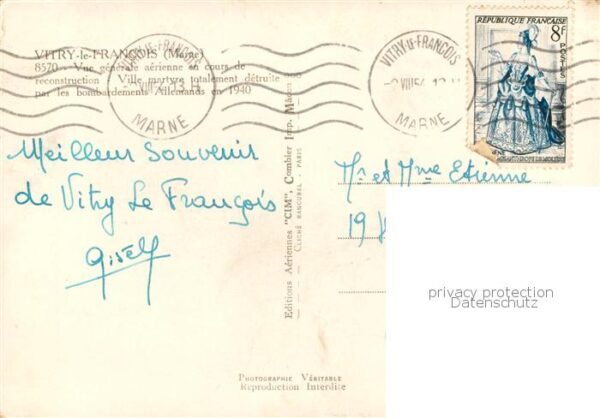 VITRY-le-FRANÇOIS (Marne)
8570 - Vue générale aérienne en cours de
reconstruction - Ville martyre totalement détruite
par les bombardements Allemands en 1940
MARNE
VITRY-LE-FRANÇOIS
MARNE
RÉPUBLIQUE FRANÇAISE
8F
POSTES
Meilleur Souvenir
de Vitry Le François
Editions Aériennes "CIM", Combier Imp. Mâcon
CLICHÉ RANCUREL - PARIS
Mr et Mme Etienne
privacy protection
Datenschutz
PHOTOGRAPHIE VÉRITABLE
Reproduction Interdite